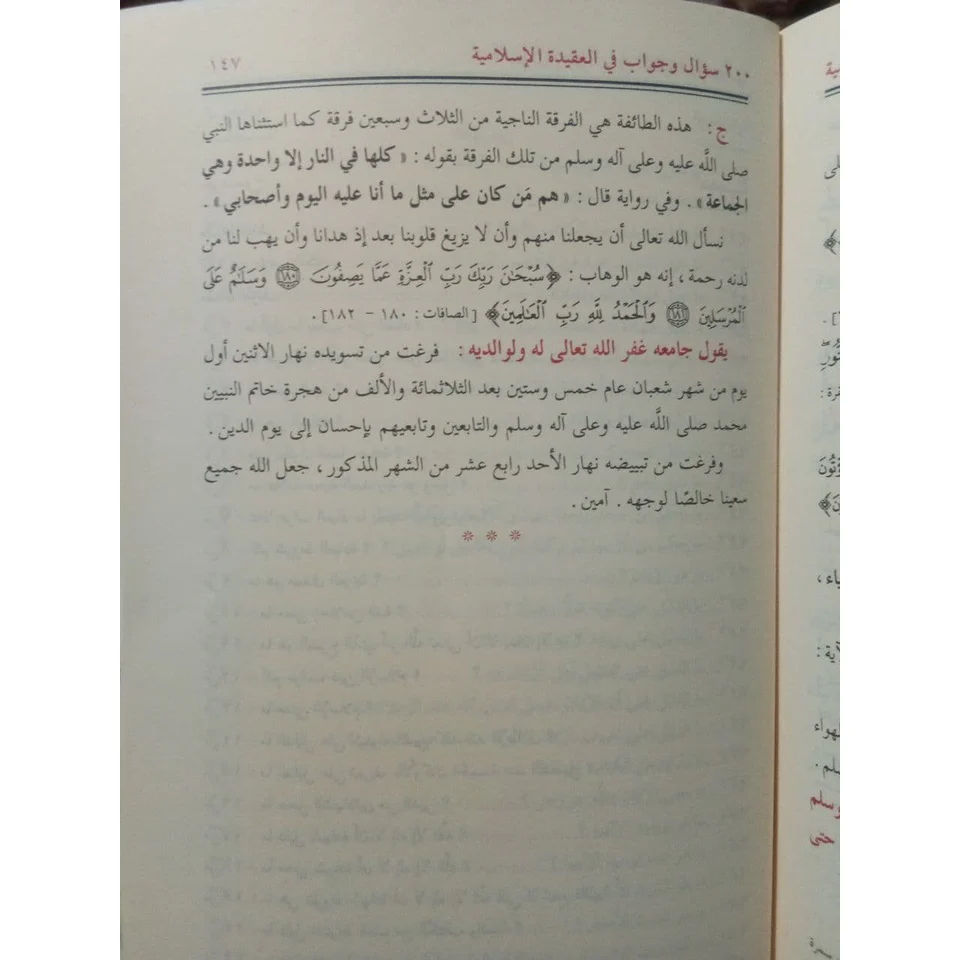 ٢٠٠ سؤال وجواب في العقيدة الإسلامية ١٤٧
ج : هذه الطائفة هي الفرقة الناجية من الثلاث وسبعين فرقة كما استثناها النبي
صلى اللَّه عليه وعلى آله وسلم من تلك الفرقة بقوله : « كلها في النار إلا واحدة وهي
الجماعة » . وفي رواية قال : « هم مَن كان على مثل ما أنا عليه اليوم وأصحابي » .
نسأل الله تعالى أن يجعلنا منهم وأن لا يزيغ قلوبنا بعد إذ هدانا وأن يهب لنا من
لدنه رحمة ، إنه هو الوهاب : ﴿ سُبْحَٰنَ رَبِّكَ رَبِّ ٱلْعِزَّةِ عَمَّا يَصِفُونَ ١٨٠ وَسَلَٰمٌ عَلَى
ٱلْمُرْسَلِينَ ١٨١ وَٱلْحَمْدُ لِلَّهِ رَبِّ ٱلْعَٰلَمِينَ ﴾ [الصافات : ١٨٠ - ١٨٢] .
يقول جامعه غفر الله تعالى له ولوالديه : فرغت من تسويده نهار الاثنين أول
يوم من شهر شعبان عام خمس وستين بعد الثلاثمائة والألف من هجرة خاتم النبيين
محمد صلى اللَّه عليه وعلى آله وسلم والتابعين وتابعيهم بإحسان إلى يوم الدين .
وفرغت من تبييضه نهار الأحد رابع عشر من الشهر المذكور ، جعل الله جميع
سعينا خالصًا لوجهه . آمين .
* * *